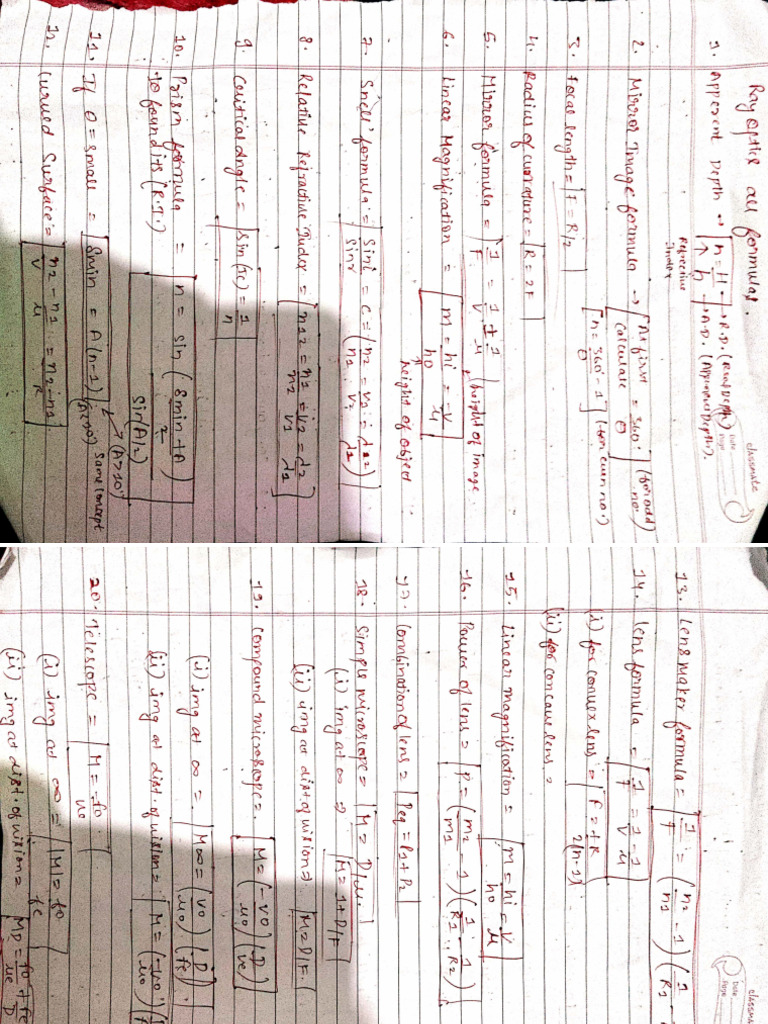 Ray optics all formulas.
classmate
Date
Page
1. Apperent Depth → n = H → R.D. (Real Depth)
h → A.D. (Apperent Depth).
Refractive
Index
2. Mirror Image formula → As first = 360° (for odd no.)
calculate θ
n = 360° - 1 (for even no.)
θ
3. Focal length = F = R/2
4. Radius of curvature = R = 2F
5. Mirror formula = 1/F = 1/V + 1/u
height of image
6. Linear Magnification = m = hi/ho = -V/u
height of object
7. Snell' formula = Sini/Sinr = C = (n2/n1 = V1/V2 = λ1/λ2)
8. Relative Refractive Index = n12 = n1/n2 = V2/V1 = λ2/λ1
9. Ceritical Angle = Sin(ic) = 1/n
10. Prism formula = n = Sin (δmin + A / 2)
To found its (R.I.) Sin(A/2)
11. If θ = small = δmin = A(n-1) (A>10°)
(A<10°) same concept
12. Curved Surface = n2/V - n1/u = n2-n1/R
classmate
Date
Page
13. Lens maker formula = 1/f = (n2/n1 - 1) (1/R1 -
14. Lens formula = 1/F = 1/V - 1/u
(i) for convex lens = F = +R/2(n-1)
(ii) for concave lens =
15. Linear magnification = m = hi/ho = V/u
16. Power of lens = P = (m2/m1 - 1) (1/R1 - 1/R2)
17. Combination of lens = Peq = P1 + P2
18. Simple microscope = M = D/u.
(i) img at ∞ ⇒ M = 1 + D/F
(ii) img at dist. of vision ⇒ M = D/F.
19. Compound microscope = M = (-vo/uo) (D/ve)
(i) img at ∞ = M∞ = (vo/uo) (D/fe)
(ii) img at dist. of vision = M = (-vo/uo) (
20. Telescope = M = -fo/ue
(i) img at ∞ = M = fo/fe
(ii) img at dist. of vision = MD = fo/ue + fe/D